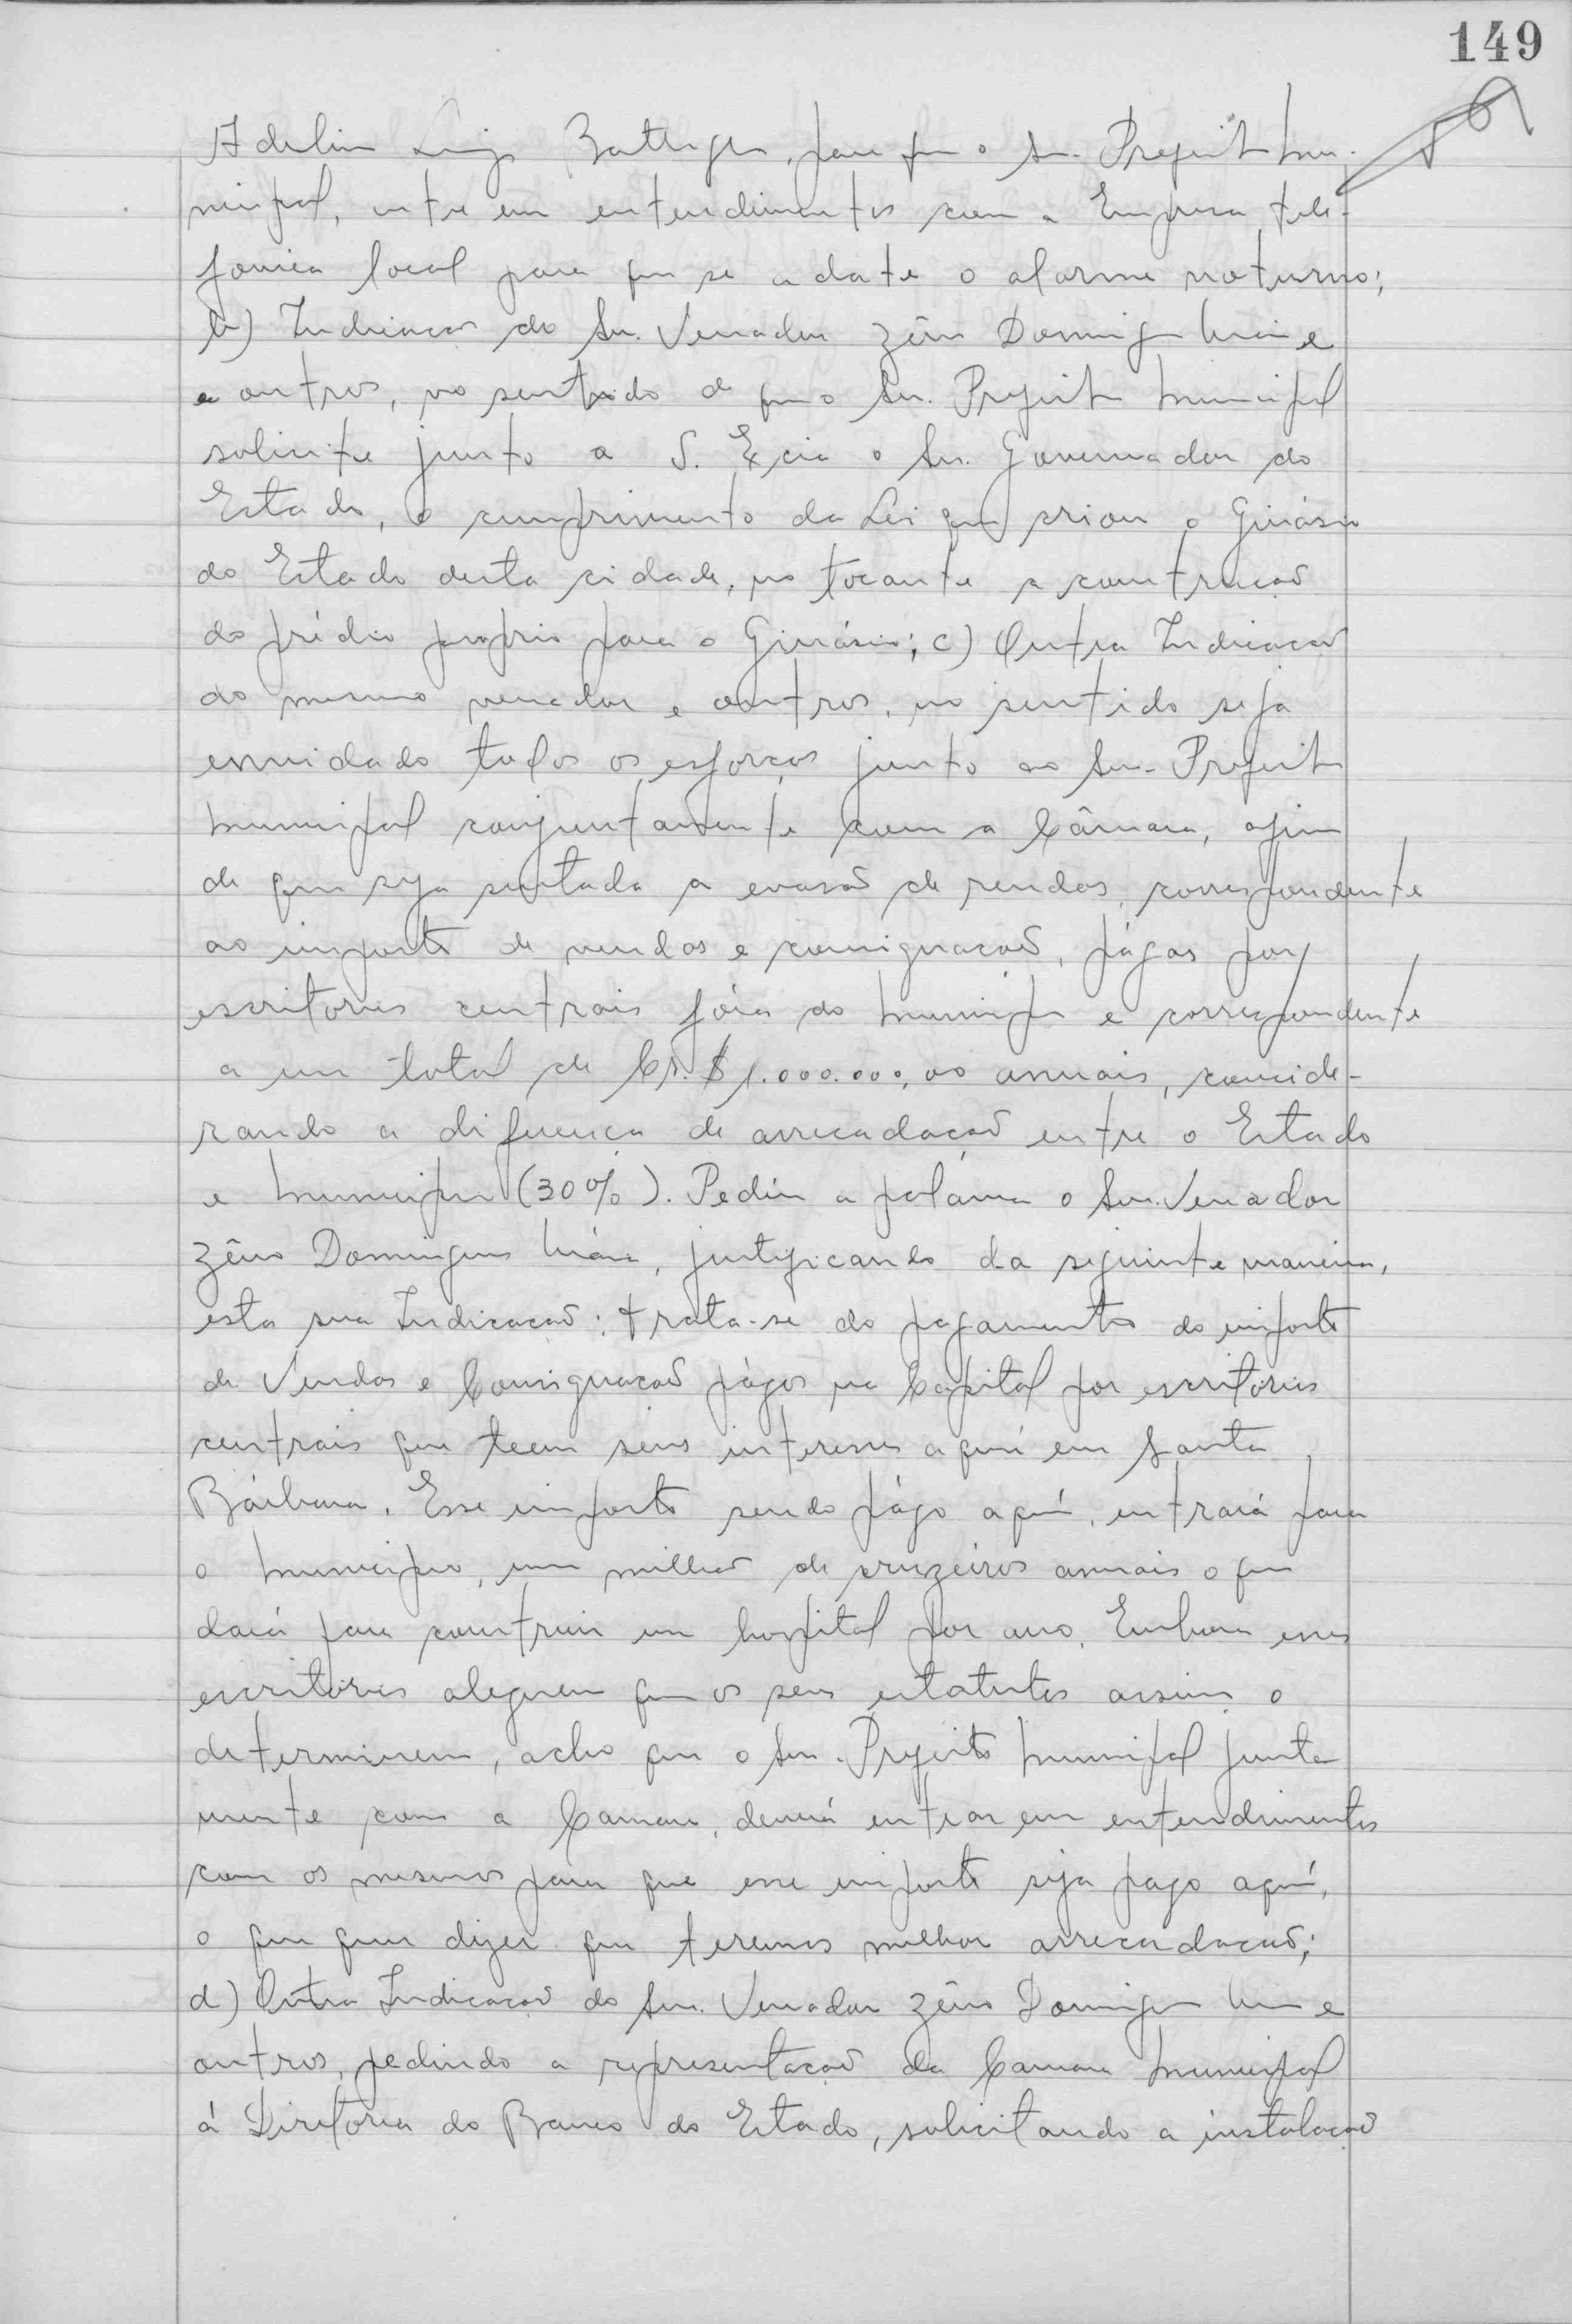 149
Adelino Luiz Battaglia, para que o Snr. Prefeito Mu-
nicipal, entre em entendimentos com a Empresa tele-
fonica local para que se adote o alarme noturno;
b) Indicação do Snr. Vereador Zêno Domingues Maia e
e outros, no sentido de que o Snr. Prefeito Municipal
solicite junto a S. Excia o Snr. Governador do
Estado, o cumprimento da Lei que criou o Ginásio
do Estado desta cidade, no tocante a construção
do prédio proprio para o Ginásio; c) Outra Indicação
do mesmo vereador e outros, no sentido seja
envidado todos os esforços junto ao Snr. Prefeito
Municipal conjuntamente com a Câmara, afim
de que seja sustada a evasão de rendas, correspondente
ao imposto de vendas e consignação, págas por
escritorios centrais fóra do Municipio e correspondente
a um total de Cr.$ 1.000.000,00 anuais, conside-
rando a diferença de arrecadação entre o Estado
e Municipio (30%). Pediu a palavra o Snr. Vereador
Zêno Domingues Maia, justificando da seguinte maneira,
esta sua Indicação: trata-se do pagamento do imposto
de Vendas e Consignação págos na Capital por escritórios
centrais que teem seus interesses aqui em Santa
Bárbara. Esse imposto sendo págo aqui, entrará para
o Municipio, um milhão de cruzeiros anuais o que
dará para construir um hospital por ano. Embora esses
escritórios aleguem que os seus estatutos assim o
determinem, acho que o Snr. Prefeito Municipal junta
mente com a Camara, deverá entrar em entendimentos
com os mesmos para que esse imposto seja pago aqui,
o que quer dizer que teremos melhor arrecadação;
d) Outra Indicação do Snr. Vereador Zêno Domingues Maia e
outros, pedindo a representação da Camara Municipal
á Diretoria do Banco do Estado, solicitando a instalação